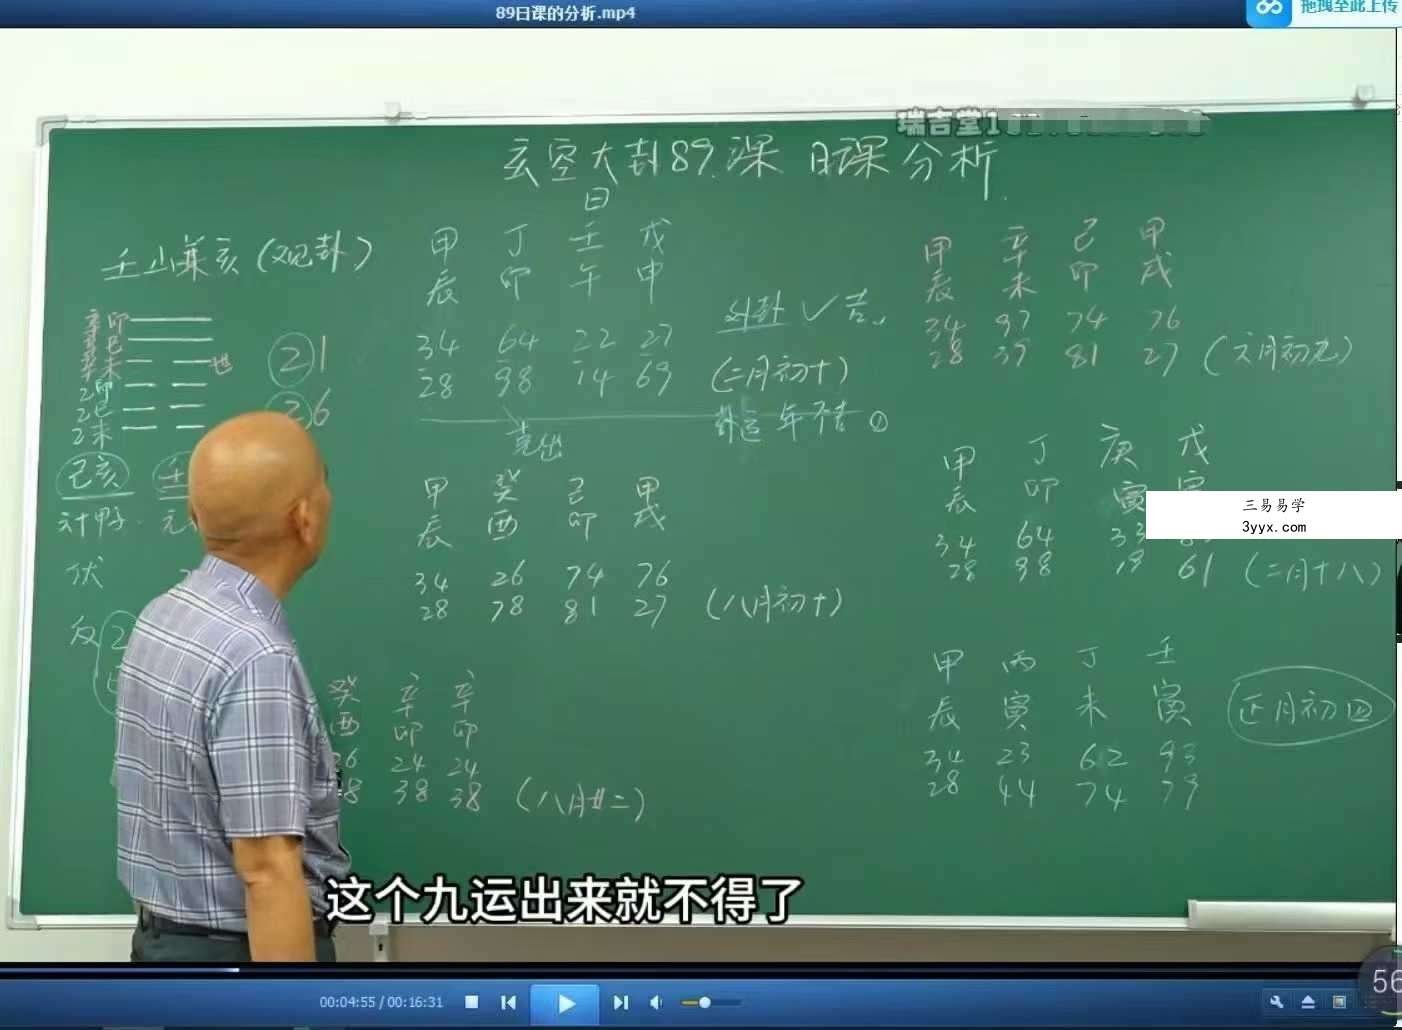 89日课的分析.mp4
拖拽至此上传
瑞吉堂1
玄空大卦89课 日课分析
日
壬山兼亥(观卦)
甲 丁 壬 戊
辰 卯 午 申
34 64 22 27
28 98 14 69
外卦 ✓ 吉
(二月初十)
克出
卦运 年不吉 ①
辛卯
辛巳
辛未 世
乙卯
乙巳
乙未
21
26
己亥 壬
计 甲子 元
伏
反 2
甲 癸 己 甲
辰 酉 卯 戌
34 26 74 76
28 78 81 27
(八月初十)
癸 辛 辛
酉 卯 卯
26 24 24
38 38
(八月廿二)
甲 辛 己 甲
辰 未 卯 戌
34 97 74 76
28 39 81 27
(六月初九)
甲 丁 庚 戊
辰 卯 寅
34 64 33
28 98 61
(二月十八)
甲 丙 丁 壬
辰 寅 未 寅
34 23 62 93
28 44 74 79
正月初四
三易易学
3yyx.com
这个九运出来就不得了
00:04:55 / 00:16:31
56